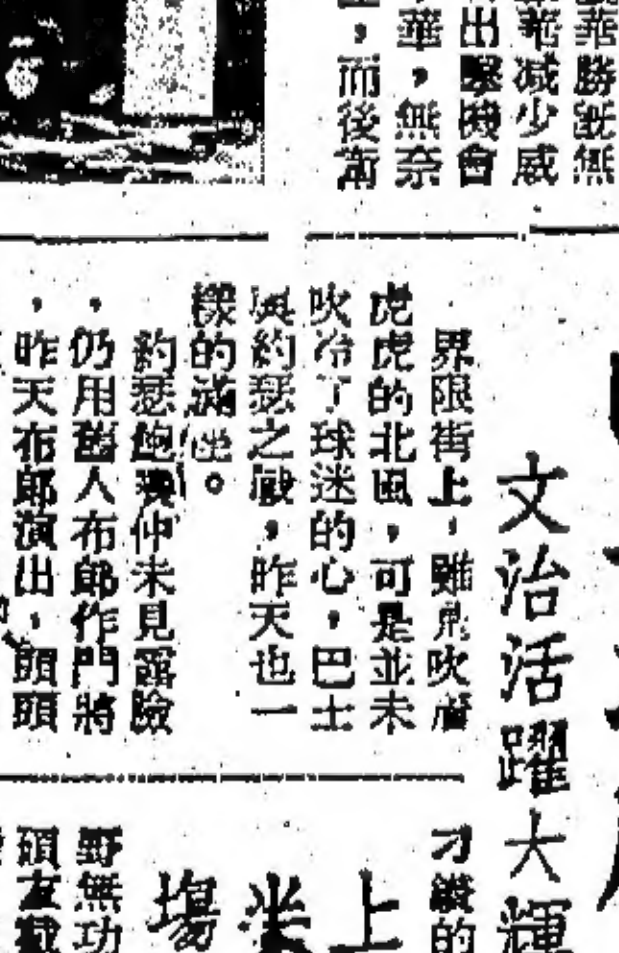 勝既無
華減少威
出擊機會
華，無奈
，而後衛
文治活躍大輝
界限街上，雖然吹着
虎虎的北風，可是並未
吹冷了球迷的心，巴士
與約瑟之戰，昨天也一
樣的滿坐。
約瑟鮑漢仲未見露臉
，仍用舊人布郎作門將
，昨天布郎演出，頭頭
才幾的
上半場
野無功